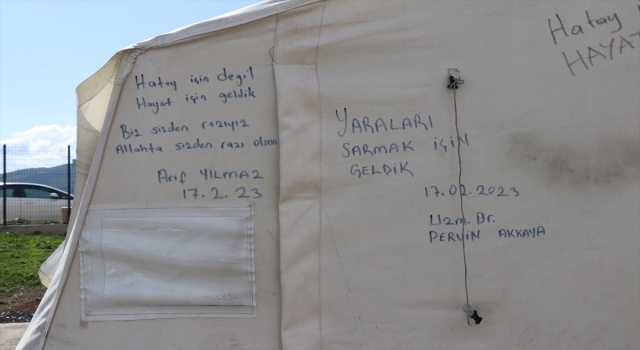 Hatay için değil
Hayat için geldik
Biz sizden razıyız
Allahta sizden razı olsun
Arif YILMAZ
17.2.23
YARALARI
SARMAK İÇİN
GELDİK
17.02.2023
Uzm. Dr.
PERVİN AKKAYA
Hatay
HAYAT